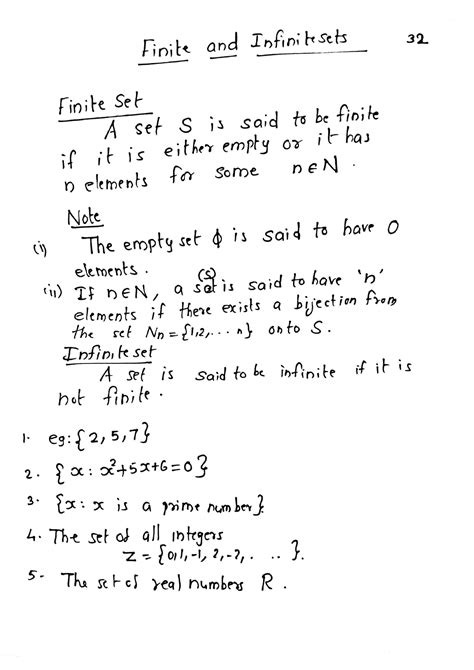 Finite and Infinite sets 32
Finite Set
A set S is said to be finite
if it is either empty or it has
n elements for some n∈N.
Note
(i) The empty set ϕ is said to have 0
elements.
(ii) If n∈N, a set (S) is said to have 'n'
elements if there exists a bijection from
the set Nn = {1,2,... n} onto S.
Infinite set
A set is said to be infinite if it is
not finite.
1. eg: {2, 5, 7}
2. {x: x²+5x+6=0}
3. {x: x is a prime number}.
4. The set of all integers
Z = {0,1,-1, 2,-2, . .. }.
5. The set of real numbers R.